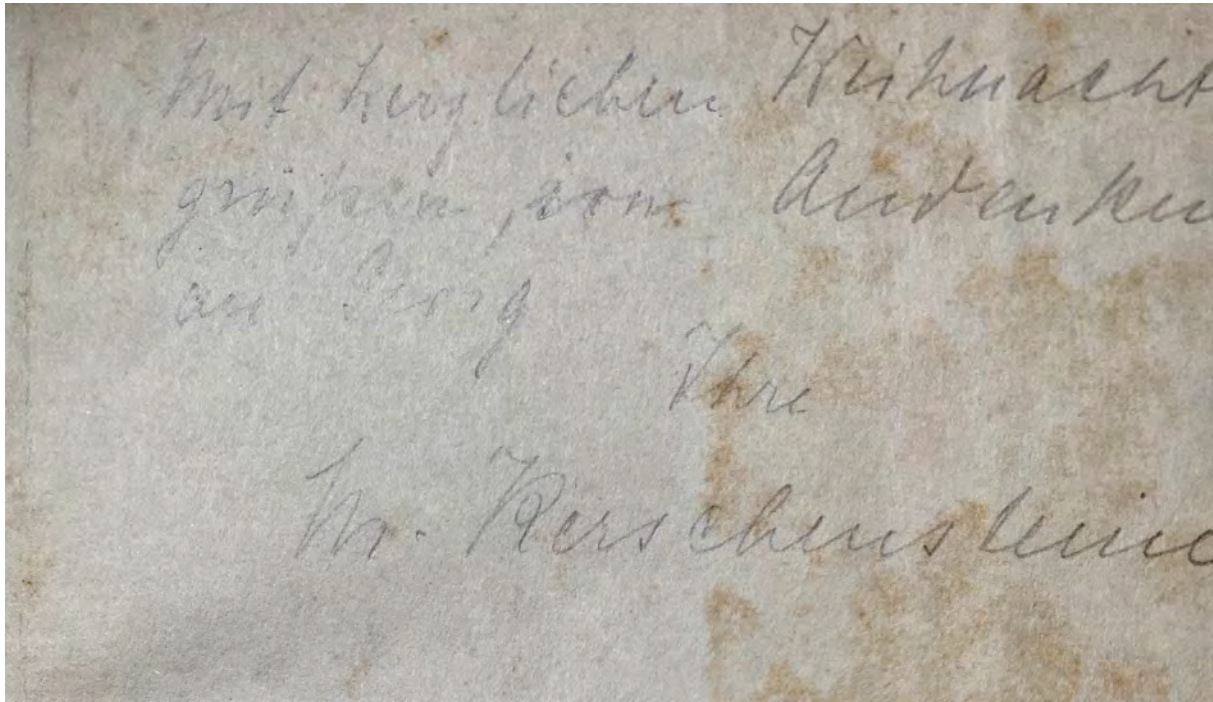 Mit herzlichen Weihnacht
grüßen, zum Andenken
an Georg
Ihre
Kerschensteine